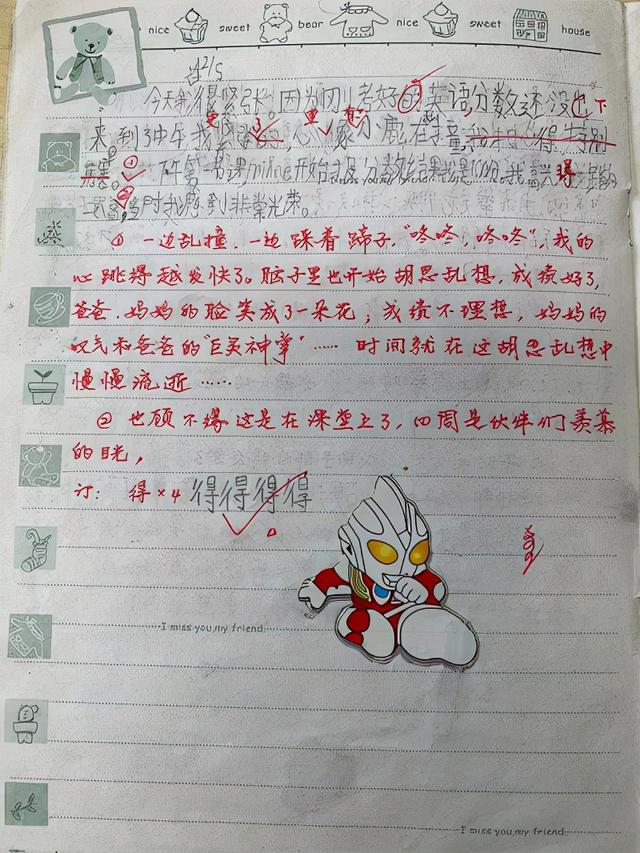 nice sweet bear nice sweet house
12/5
今天我很紧张,因为刚刚考好的英语,分数还没出下
来。到了中午我 心像小鹿在撞,
下午第一节课,mihoe开始报分数结果我是100份,我
当时我感到非常光荣。
① 一边乱撞,一边踩着蹄子,“咚咚,咚咚”,我的
心跳得越发快了。脑子里也开始胡思乱想,成绩好了,
爸爸、妈妈的脸笑成了一朵花;成绩不理想,妈妈的
叹气和爸爸的“巨灵神掌”…… 时间就在这胡思乱想中
慢慢流逝……
② 也顾不得这是在课堂上了,四周是伙伴们羡慕
的目光,
订: 得×4 得得得得
I miss you,my friend
I miss you,my friend